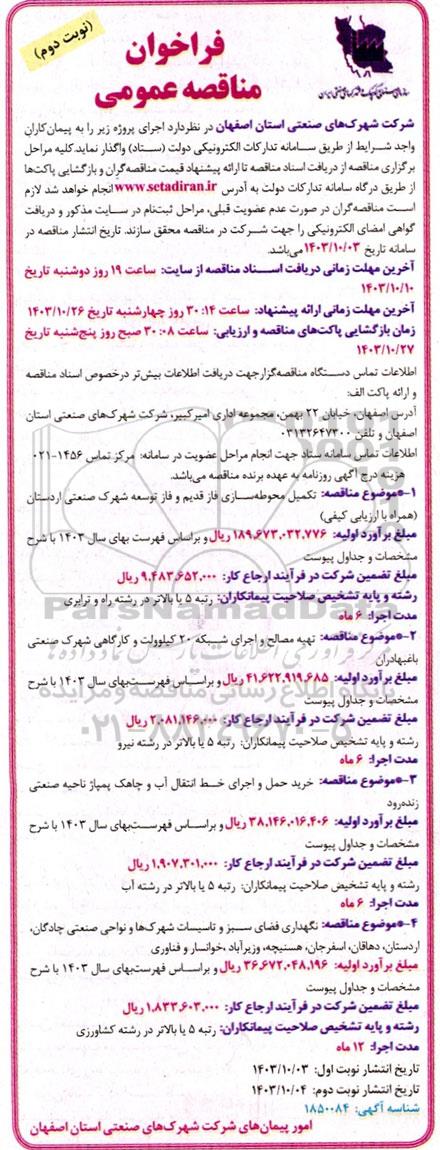 (نوبت دوم)
فراخوان
مناقصه عمومی
شرکت شهرک‌های صنعتی استان اصفهان در نظردارد اجرای پروژه زیر را به پیمان‌کاران
واجد شرایط از طریق سامانه تدارکات الکترونیکی دولت (ستاد) واگذار نماید.کلیه مراحل
برگزاری مناقصه از دریافت اسناد مناقصه تا ارائه پیشنهاد قیمت مناقصه‌گران و بازگشایی پاکت‌ها
از طریق درگاه سامانه تدارکات دولت به آدرس www.setadiran.ir انجام خواهد شد لازم
است مناقصه‌گران در صورت عدم عضویت قبلی، مراحل ثبت‌نام در سایت مذکور و دریافت
گواهی امضای الکترونیکی را جهت شرکت در مناقصه محقق سازند. تاریخ انتشار مناقصه در
سامانه تاریخ ۱۴۰۳/۱۰/۰۳ می‌باشد.
آخرین مهلت زمانی دریافت اسناد مناقصه از سایت: ساعت ۱۹ روز دوشنبه تاریخ
۱۴۰۳/۱۰/۱۰
آخرین مهلت زمانی ارائه پیشنهاد: ساعت ۱۴:۳۰ روز چهارشنبه تاریخ ۱۴۰۳/۱۰/۲۶
زمان بازگشایی پاکت‌های مناقصه و ارزیابی: ساعت ۰۸:۳۰ صبح روز پنج‌شنبه تاریخ
۱۴۰۳/۱۰/۲۷
اطلاعات تماس دستگاه مناقصه‌گزارجهت دریافت اطلاعات بیش‌تر درخصوص اسناد مناقصه
و ارائه پاکت الف:
آدرس اصفهان، خیابان ۲۲ بهمن، مجموعه اداری امیرکبیر، شرکت شهرک‌های صنعتی استان
اصفهان و تلفن ۰۳۱۳۲۶۴۷۳۰۰
اطلاعات تماس سامانه ستاد جهت انجام مراحل عضویت در سامانه: مرکز تماس ۱۴۵۶-۰۲۱
هزینه درج آگهی روزنامه به عهده برنده مناقصه می‌باشد.
۱-موضوع مناقصه: تکمیل محوطه‌سازی فاز قدیم و فاز توسعه شهرک صنعتی اردستان
(همراه با ارزیابی کیفی)
مبلغ برآورد اولیه: ۱۸۹,۶۷۳,۰۳۲,۷۷۶ ریال و براساس فهرست بهای سال ۱۴۰۳ با شرح
مشخصات و جداول پیوست
مبلغ تضمین شرکت در فرآیند ارجاع کار: ۹,۴۸۳,۶۵۲,۰۰۰ ریال
رشته و پایه تشخیص صلاحیت پیمانکاران: رتبه ۵ یا بالاتر در رشته راه و ترابری
مدت اجرا: ۶ ماه
۲-موضوع مناقصه: تهیه مصالح و اجرای شبکه ۲۰ کیلوولت و کارگاهی شهرک صنعتی
باغبهادران
مبلغ برآورد اولیه: ۴۱,۶۲۲,۹۱۹,۶۸۵ ریال و براساس فهرست‌بهای سال ۱۴۰۳ با شرح
مشخصات و جداول پیوست
مبلغ تضمین شرکت در فرآیند ارجاع کار: ۲,۰۸۱,۱۴۶,۰۰۰ ریال
رشته و پایه تشخیص صلاحیت پیمانکاران: رتبه ۵ یا بالاتر در رشته نیرو
مدت اجرا: ۶ ماه
۳-موضوع مناقصه: خرید حمل و اجرای خط انتقال آب و چاهک پمپاژ ناحیه صنعتی
زنده‌رود
مبلغ برآورد اولیه: ۳۸,۱۴۶,۰۱۶,۴۰۶ ریال و براساس فهرست‌بهای سال ۱۴۰۳ با شرح
مشخصات و جداول پیوست
مبلغ تضمین شرکت در فرآیند ارجاع کار: ۱,۹۰۷,۳۰۱,۰۰۰ ریال
رشته و پایه تشخیص صلاحیت پیمانکاران: رتبه ۵ یا بالاتر در رشته آب
مدت اجرا: ۶ ماه
۴-موضوع مناقصه: نگهداری فضای سبز و تاسیسات شهرک‌ها و نواحی صنعتی چادگان،
اردستان، دهاقان، اسفرجان، هسنیچه، وزیرآباد ،خوانسار و فناوری
مبلغ برآورد اولیه: ۳۶,۶۷۲,۰۴۸,۱۹۶ ریال و براساس فهرست‌بهای سال ۱۴۰۳ با شرح
مشخصات و جداول پیوست
مبلغ تضمین شرکت در فرآیند ارجاع کار: ۱,۸۳۳,۶۰۳,۰۰۰ ریال
رشته و پایه تشخیص صلاحیت پیمانکاران: رتبه ۵ یا بالاتر در رشته کشاورزی
مدت اجرا: ۱۲ ماه
تاریخ انتشار نوبت اول: ۱۴۰۳/۱۰/۰۳
تاریخ انتشار نوبت دوم: ۱۴۰۳/۱۰/۰۴
شناسه آگهی: ۱۸۵۰۰۸۴
امور پیمان‌های شرکت شهرک‌های صنعتی استان اصفهان
ParsNamadData
پایگاه اطلاع رسانی مناقصه و مزایده
۰۲۱-۸۸۳۴۹۶۷۰-۵